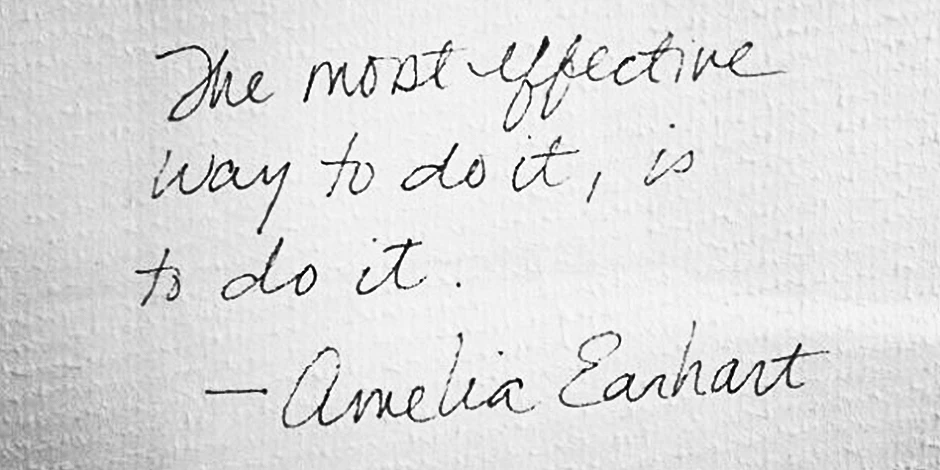 The most effective
way to do it, is
to do it.
— Amelia Earhart